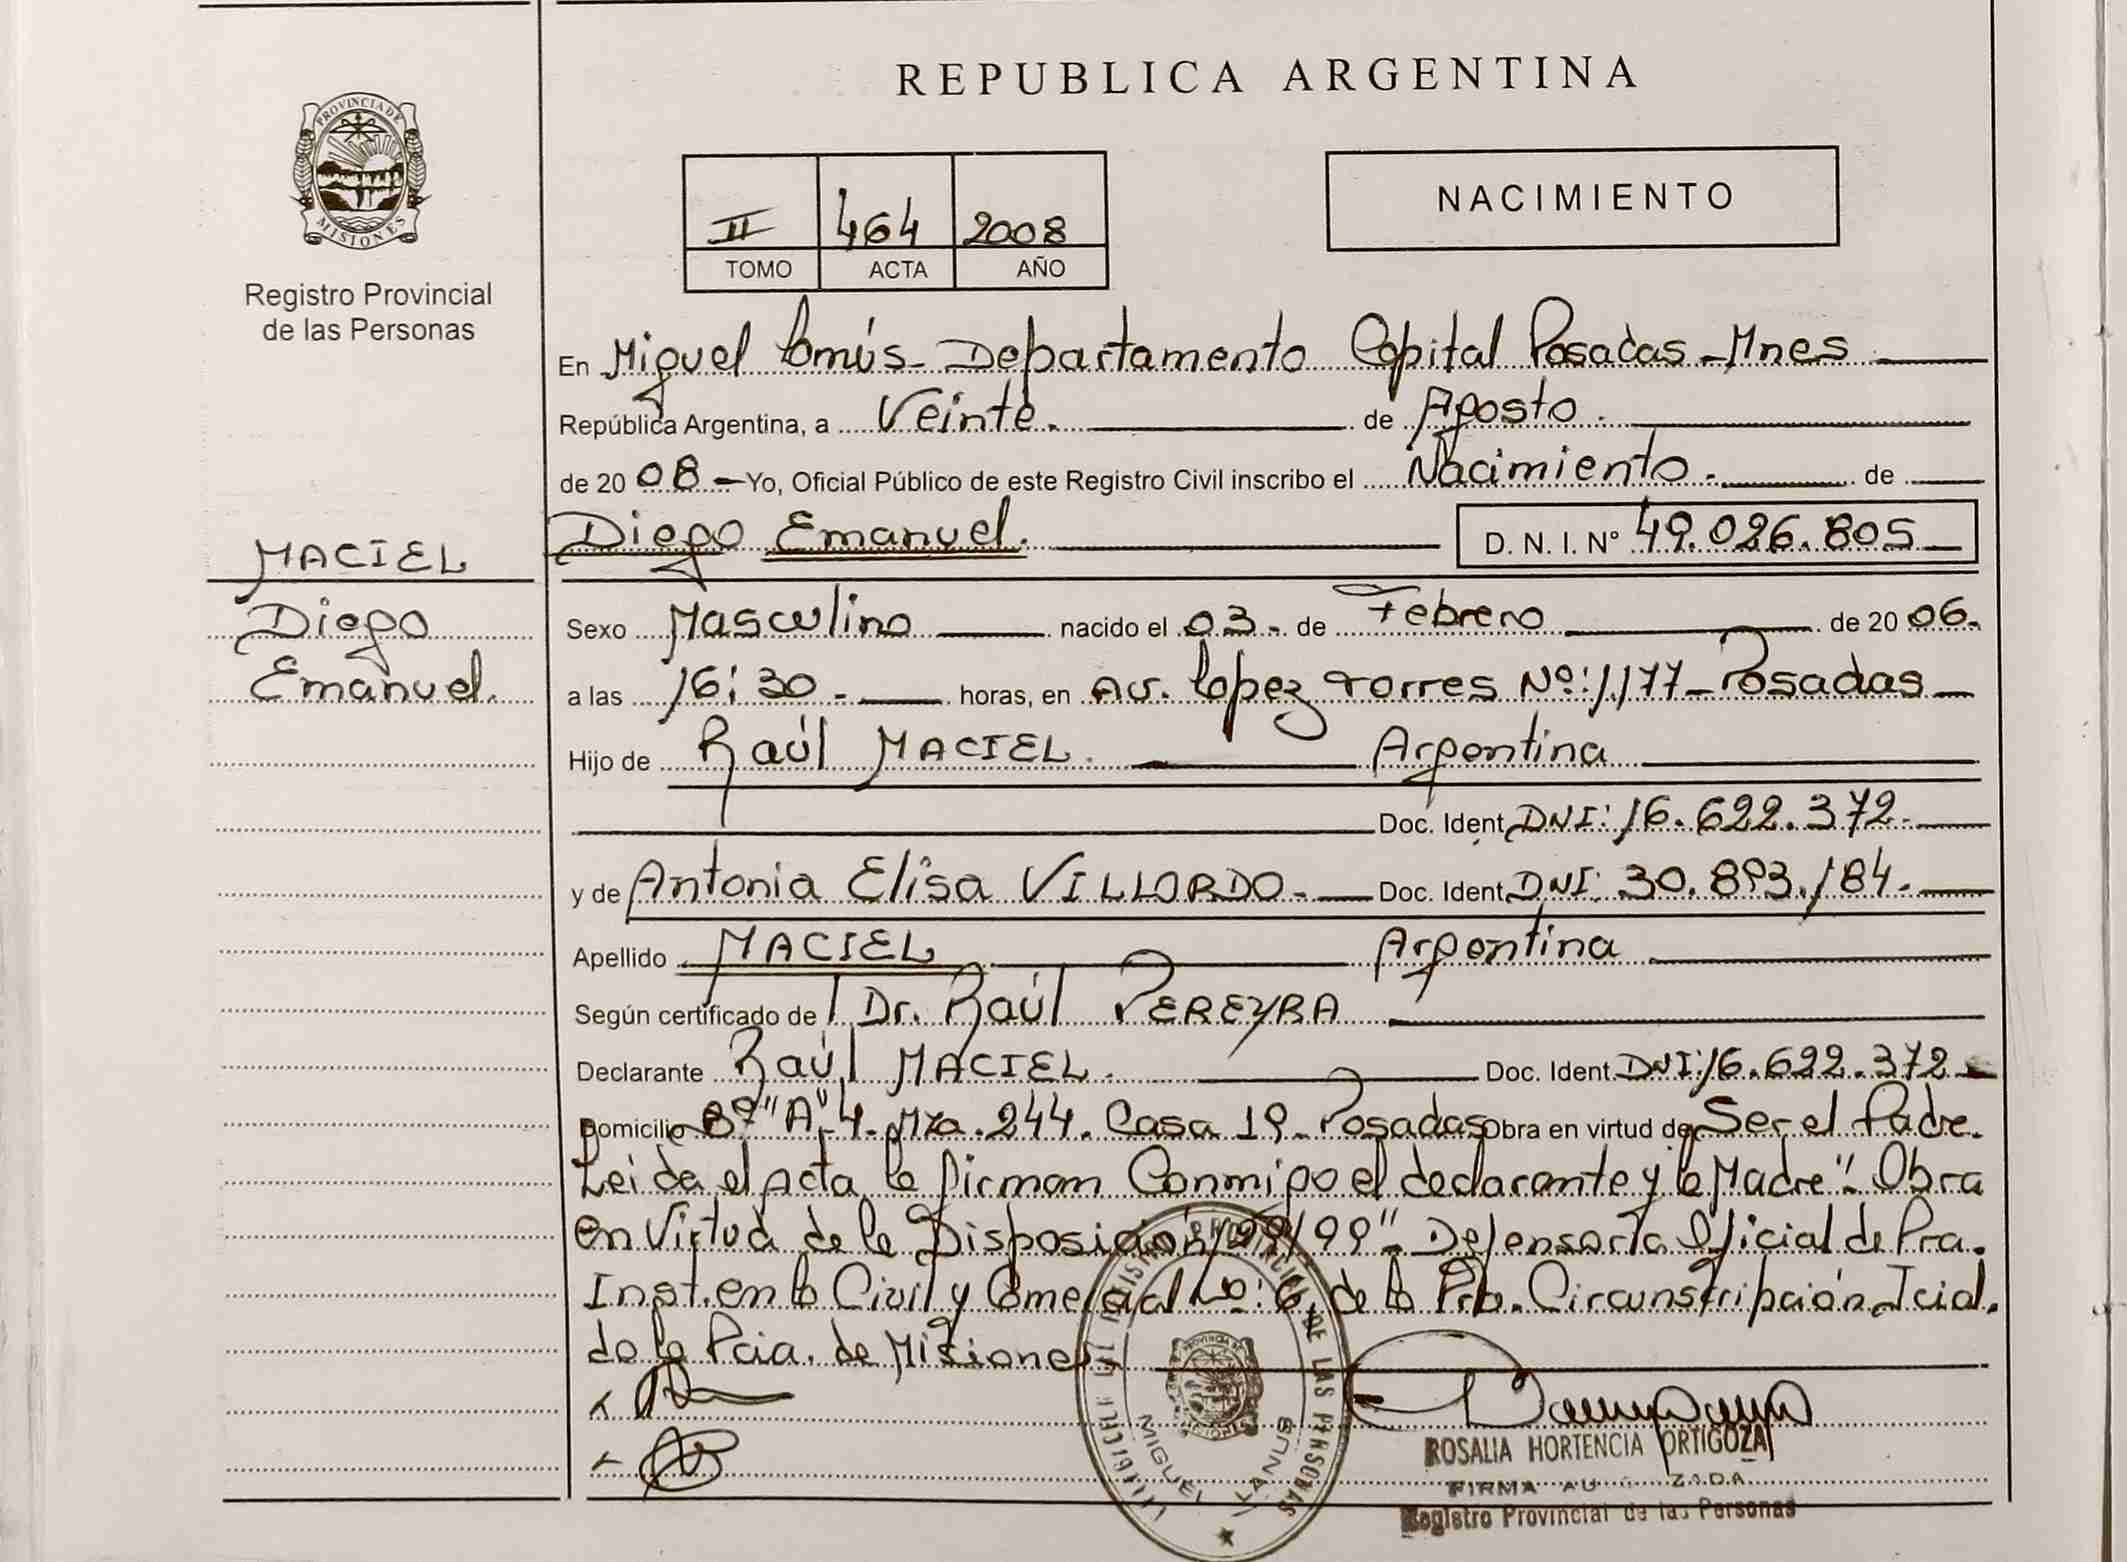 REPUBLICA ARGENTINA
PROVINCIA DE
MISIONES
Registro Provincial
de las Personas
II 464 2008
TOMO ACTA AÑO
NACIMIENTO
En Miguel Lanús - Departamento Capital Posadas - Mnes
República Argentina, a Veinte. de Agosto.
de 20 08 - Yo, Oficial Público de este Registro Civil inscribo el Nacimiento. de
Diego Emanuel. D. N. I. Nº 49.026.805
MACIEL
Diego
Emanuel.
Sexo Masculino nacido el 03 - de Febrero de 20 06.
a las 16:30 - horas, en Av. Lopez Torres Nº: 1177 - Posadas
Hijo de Raúl MACIEL. Argentina
Doc. Ident. DNI: 16.622.372.
y de Antonia Elisa VILLORDO. Doc. Ident. DNI: 30.893.184.
Apellido MACIEL Argentina
Según certificado de Dr. Raúl PEREYRA
Declarante Raúl MACIEL. Doc. Ident. DNI: 16.622.372
Domicilio "A" 4. Mza. 244. Casa 19 - Posadas Obra en virtud de Ser el Padre.
Leida el Acta, la firman Conmigo el declarante y la Madre". Obra
en Virtud de la Disposición 99". Defensoría Oficial de Pra.
Inst. en lo Civil y Comercial Nº: 6, de la Pra. Circunscripción Jcial.
de la Pcia. de Misiones
REGISTRO PROVINCIAL DE LAS PERSONAS
MIGUEL LANUS
ROSALIA HORTENCIA ORTIGOZA
FIRMA
Registro Provincial de las Personas